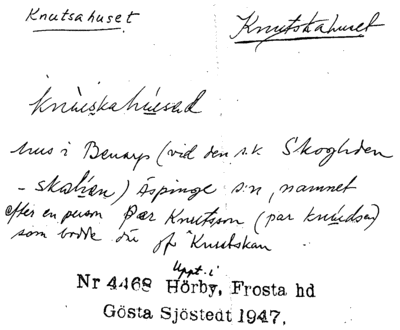 Knutsahuset Knutskahuset
knuskahused
hus i Benarp (vid den s.k. Skogliden
-skolan) Äspinge s:n, namnet
efter en person Per Knutsson (par knudsa)
som bodde där of "Knutskan
Uppt. i
Nr 4468 Hörby, Frosta hd
Gösta Sjöstedt 1947.